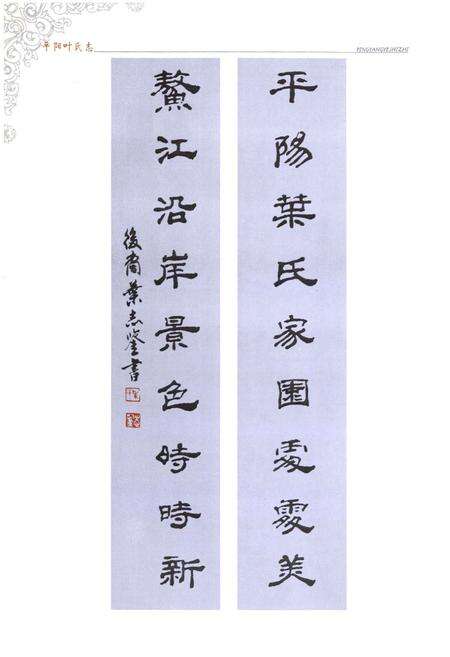 平阳叶氏志
PINGYANGYESHIZHI
平陽葉氏家園處處美
鰲江沿岸景色時時新
後裔葉志鑒書